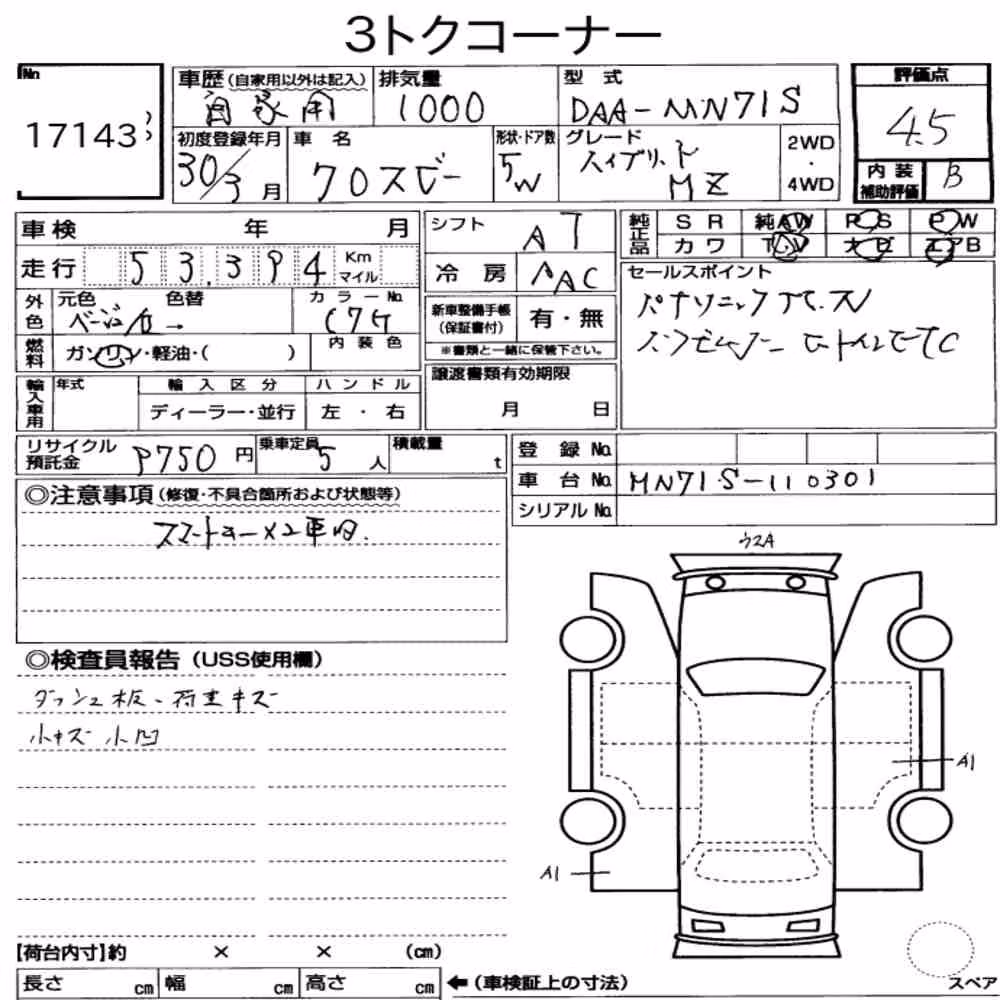 3トクコーナー
No 17143
車歴 (自家用以外は記入) 自家用
排気量 1000
型式 DAA-MN71S
評価点 4.5
初度登録年月 30/3月
車名 クロスビー
形状・ドア数 5W
グレード ハイブリット MZ
2WD・4WD
内装補助評価 B
車検 年 月
走行 53,394 Km マイル
外色 元色 ベージュ 色替
カラーNo. C7G
燃料 ガソリン・軽油・( )
内装色
輸入車用 年式
輸入区分 ディーラー・並行
ハンドル 左・右
シフト AT
冷房 AAC
新車整備手帳(保証書付) 有・無
※書類と一緒に保管下さい。
譲渡書類有効期限 月 日
純正品 SR 純AW PS PW
カワ TV ナビ エアB
セールスポイント
リサイクル預託金 9750円
乗車定員 5人
積載量 t
登録No.
車台No. MN71S-110301
シリアルNo.
◎注意事項 (修復・不具合箇所および状態等)
スマートキー×2車内.
◎検査員報告 (USS使用欄)
ダッシュ板、荷室キズ
小キズ 小凹
ウスA
A1
A1
【荷台内寸】約 × × (cm)
長さ cm 幅 cm 高さ cm ←(車検証上の寸法)
スペア